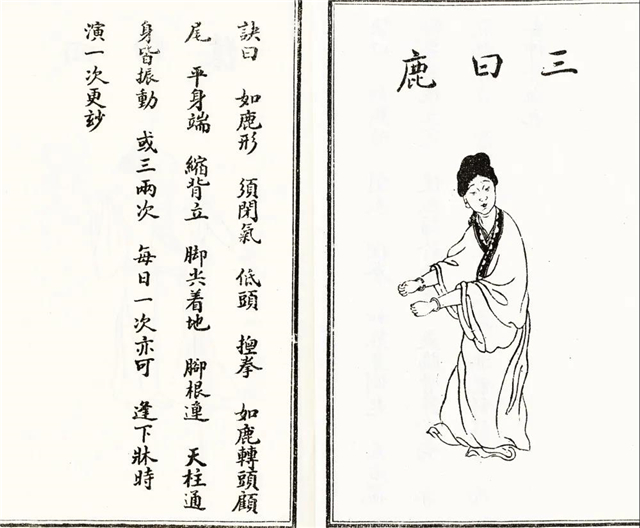 三曰鹿
訣曰 如鹿形 須閉氣 低頭 捏拳 如鹿轉頭顧
尾 平身端 縮背立 脚尖着地 腳根連 天柱通
身皆振動 或三兩次 每日一次亦可 逢下牀時
演一次更玅